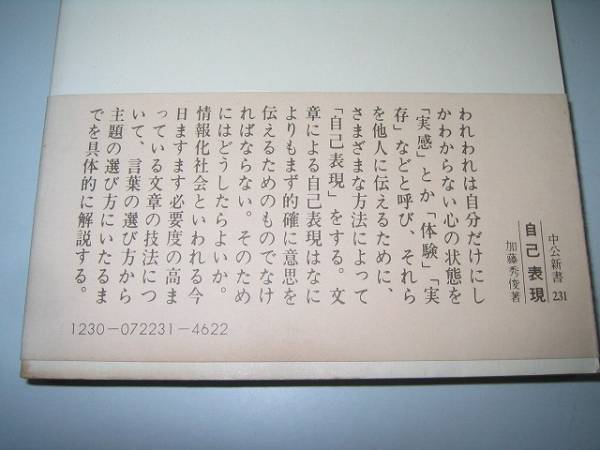 中公新書 231
自己表現
加藤秀俊著
われわれは自分だけにし
かわからない心の状態を
「実感」とか「体験」「実
存」などと呼び、それら
を他人に伝えるために、
さまざまな方法によって
「自己表現」をする。文
章による自己表現はなに
よりもまず的確に意思を
伝えるためのものでなけ
ればならない。そのため
にはどうしたらよいか。
情報化社会といわれる今
日ますます必要度の高ま
っている文章の技法につ
いて、言葉の選び方から
主題の選び方にいたるま
でを具体的に解説する。
1230-072231-4622